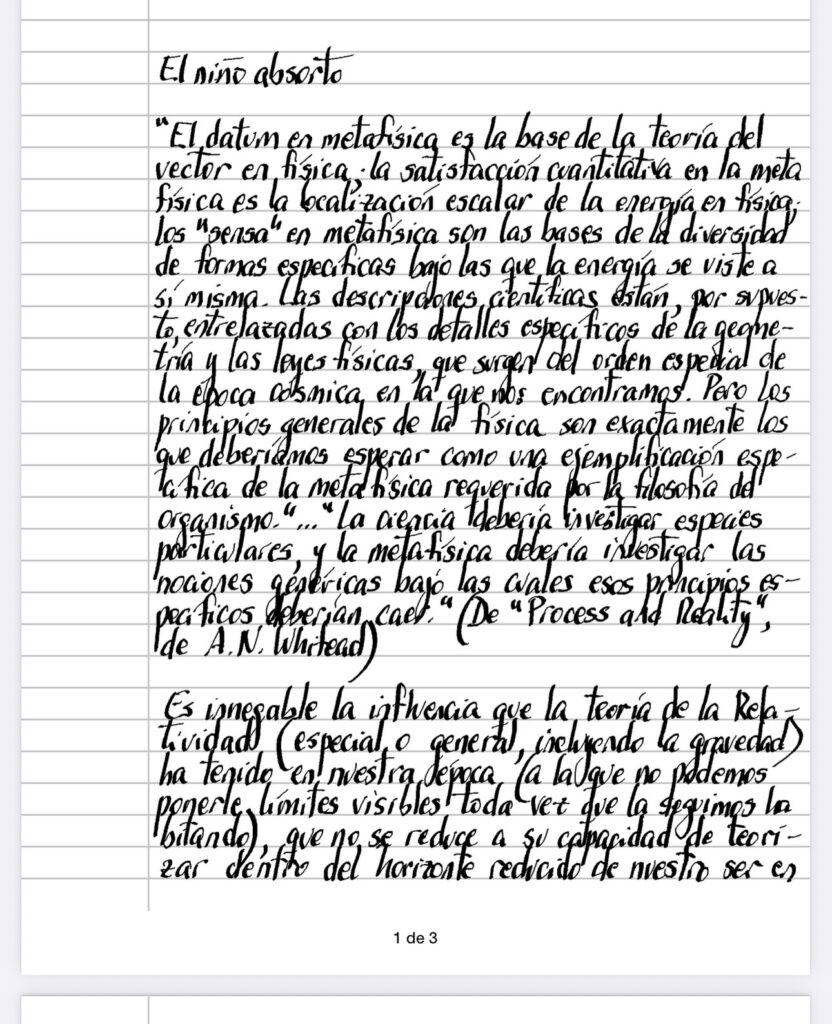 El niño absorto
"El datum en metafísica es la base de la teoría del
vector en física; la satisfacción cuantitativa en la meta
física es la localización escalar de la energía en física;
los "sensa" en metafísica son las bases de la diversidad
de formas específicas bajo las que la energía se viste a
sí misma. Las descripciones científicas están, por supues-
to, entrelazadas con los detalles específicos de la geome-
tría y las leyes físicas, que surgen del orden especial de
la época cósmica en la que nos encontramos. Pero los
principios generales de la física son exactamente los
que deberíamos esperar como una ejemplificación espe-
cífica de la metafísica requerida por la filosofía del
organismo."..."La ciencia debería investigar especies
particulares, y la metafísica debería investigar las
nociones genéricas bajo las cuales esos principios es-
pecíficos deberían caer." (De "Process and Reality",
de A.N. Whitead)
Es innegable la influencia que la teoría de la Rela-
tividad (especial o general, incluyendo la gravedad)
ha tenido en nuestra época (a la que no podemos
ponerle límites visibles toda vez que la seguimos ha
bitando), que no se reduce a su capacidad de teori-
zar dentro del horizonte reducido de nuestro ser en
1 de 3